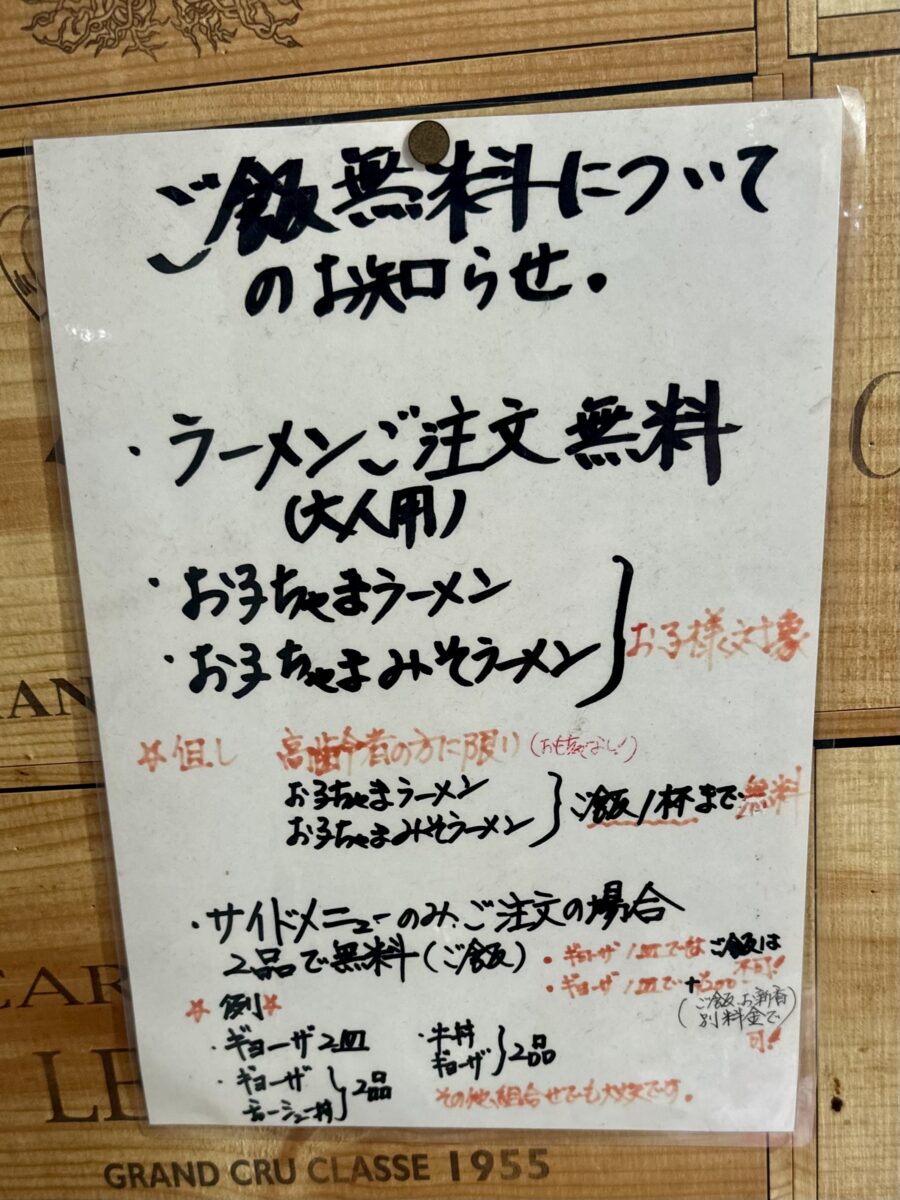 ご飯無料について
のお知らせ。
・ラーメンご注文無料
(大人用)
・お子ちゃまラーメン
・お子ちゃまみそラーメン
お子様対象
☆但し 高齢者の方に限り(おもちゃなし!)
お子ちゃまラーメン
お子ちゃまみそラーメン
ご飯1杯まで無料
・サイドメニューのみ、ご注文の場合
2品で無料(ご飯)
・ギョーザ1皿ではご飯は
不可!
・ギョーザ1皿で+300
(ご飯、お新香
別料金で)
可!
☆例☆
・ギョーザ2皿
・ギョーザ
チャーシュー丼
2品
・牛丼
ギョーザ
2品
その他、組合せでも大丈夫です。
GRAND CRU CLASSE 1955